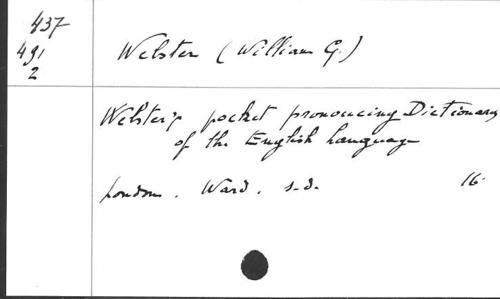 437
491
2
Webster (William G.)
Webster's pocket pronouncing Dictionary
of the English Language
London. Ward. s.d. 16